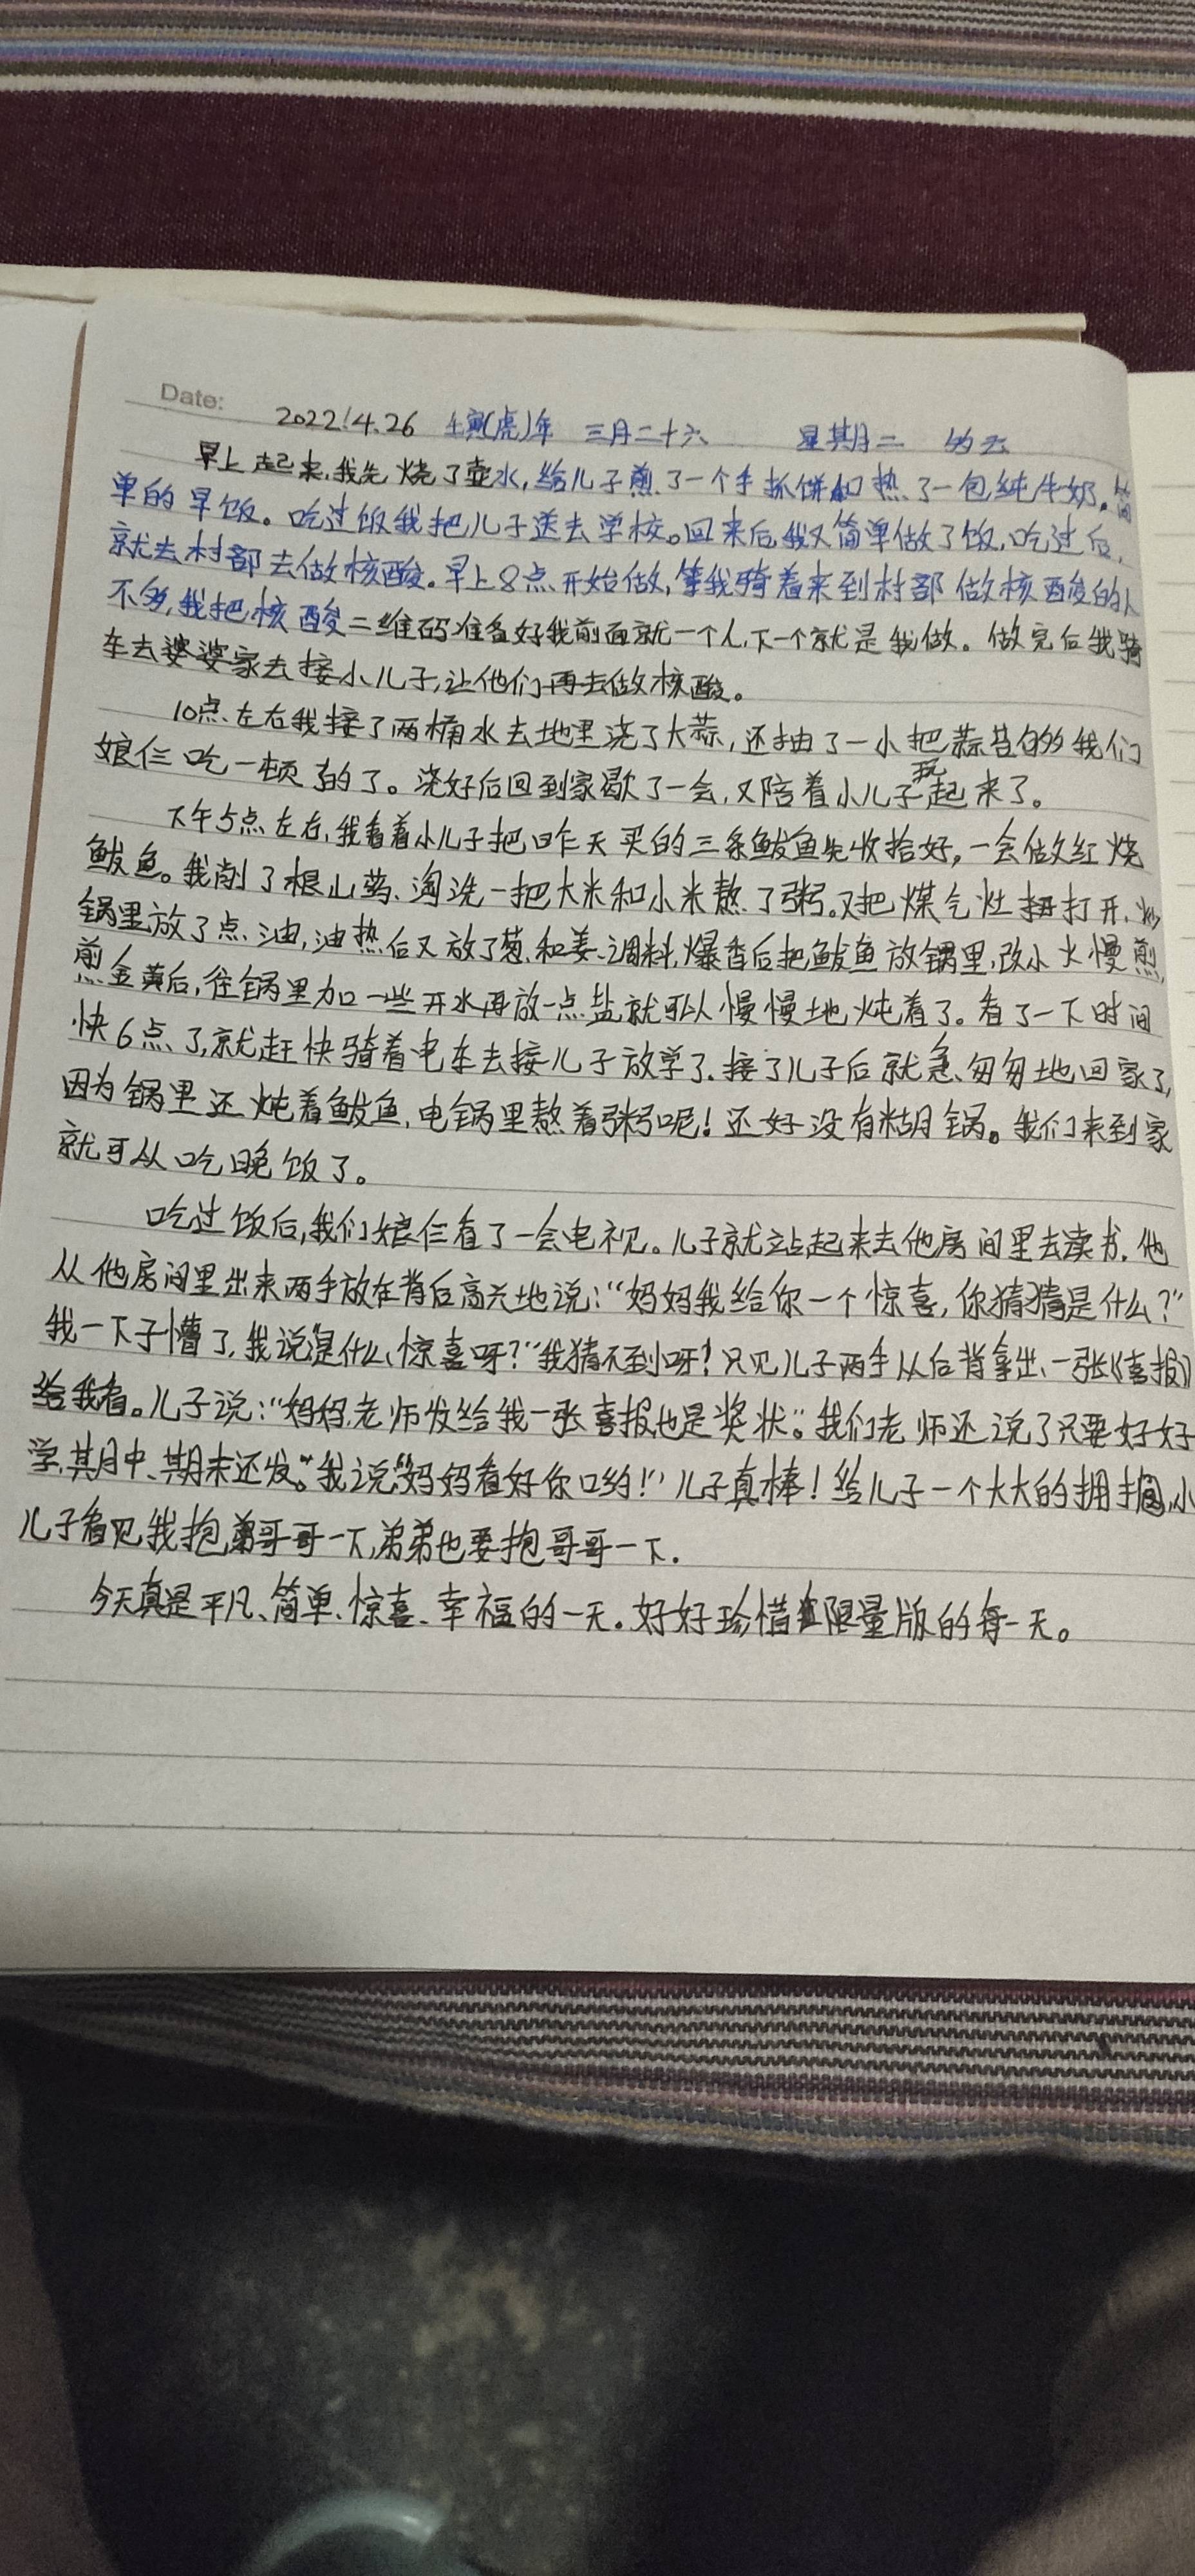 Date: 2022.4.26 壬寅(虎)年 三月二十六 星期二
早上起来,我先烧了壶水,给儿子煎了一个手抓饼和热了一包纯牛奶。简
单的早饭。吃过饭我把儿子送去学校。回来后,我又简单做了饭,吃过后,
就去村部去做核酸。早上8点开始做,等我骑着来到村部做核酸的人
不多,我把核酸二维码准备好我前面就一个人,下一个就是我做。做完后我骑
车去婆婆家去接小儿子,让他们再去做核酸。
10点左右我接了两桶水去地里浇了大蒜,还抽了一小把蒜苔的够我们
娘仨吃一顿的了。浇好后回到家歇了一会,又陪着小儿子玩起来了。
下午5点左右,我看着小儿子把昨天买的三条鲅鱼先收拾好,一会做红烧
鲅鱼。我削了根山药、淘洗一把大米和小米熬了粥。又把煤气灶打开、
锅里放了点油,油热后又放了葱和姜、调料,爆香后把鲅鱼放锅里,改小火慢煎,
煎金黄后,往锅里加一些开水再放一点盐就可以慢慢地炖着了。看了一下时间
快6点了,就赶快骑着电车去接儿子放学了.接了儿子后就急匆匆地回家了,
因为锅里还炖着鲅鱼,电锅里熬着粥呢!还好没有糊锅。我们来到家
就可以吃晚饭了。
吃过饭后,我们娘仨看了一会电视。儿子就站起来去他房间里去读书.他
从他房间里出来两手放在背后高兴地说:“妈妈我给你一个惊喜,你猜猜是什么?”
我一下子懵了,我说“是什么惊喜呀?”我猜不到呀!只见儿子两手从后背拿出一张《喜报》
给我看。儿子说:“妈妈,老师发给我一张喜报也是奖状”。我们老师还说了只要好好
学,其月中、期末还发。”我说“妈妈看好你哟!”儿子真棒!给儿子一个大大的拥抱,小
儿子看见我抱哥哥一下,弟弟也要抱哥哥一下.
今天真是平凡、简单、惊喜、幸福的一天.好好珍惜限量版的每一天。